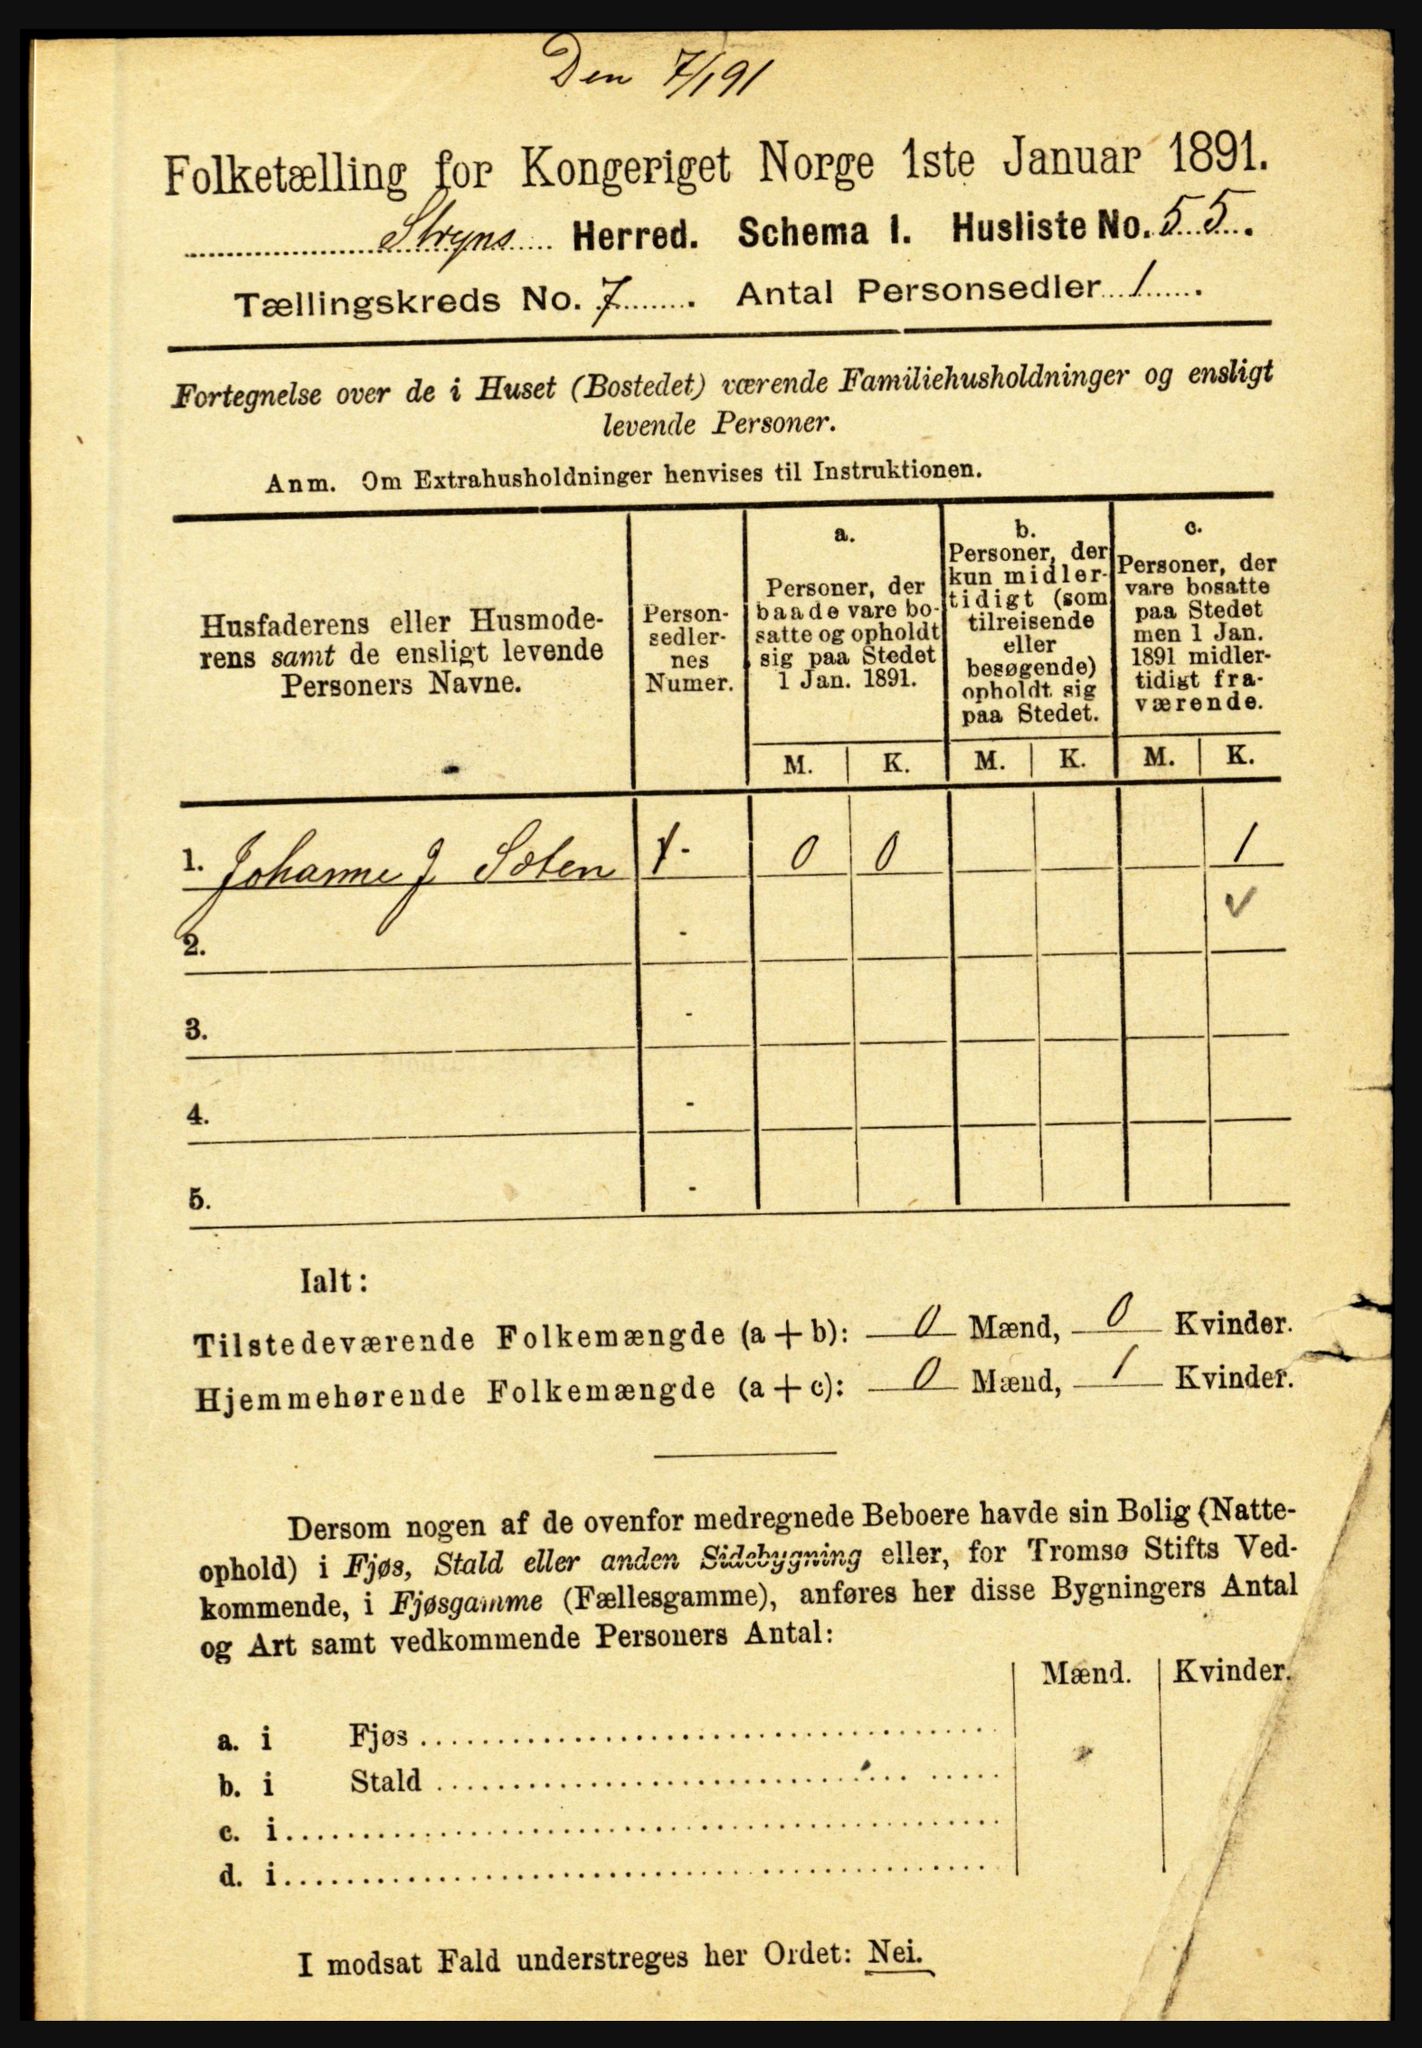 Den 7/1 91
Folketælling for Kongeriget Norge 1ste Januar 1891.
Stryns Herred. Schema I. Husliste No. 55.
Tællingskreds No. 7. Antal Personsedler 1.
Fortegnelse over de i Huset (Bostedet) værende Familiehusholdninger og ensligt
levende Personer.
Anm. Om Extrahusholdninger henvises til Instruktionen.
Husfaderens eller Husmode-
rens samt de ensligt levende
Personers Navne.
Person-
sedler-
nes
Numer.
a.
Personer, der
baade vare bo-
satte og opholdt
sig paa Stedet
1 Jan. 1891.
b.
Personer, der
kun midler-
tidigt (som
tilreisende
eller
besøgende)
opholdt sig
paa Stedet.
c.
Personer, der
vare bosatte
paa Stedet
men 1 Jan.
1891 midler-
tidigt fra-
værende.
M. K. M. K. M. K.
1. Johanne J Soten 1 - 0 0 1
2. - ✓
3. -
4. -
5. -
Ialt:
Tilstedeværende Folkemængde (a + b): 0 Mænd, 0 Kvinder.
Hjemmehørende Folkemængde (a + c): 0 Mænd, 1 Kvinder.
Dersom nogen af de ovenfor medregnede Beboere havde sin Bolig (Natte-
ophold) i Fjøs, Stald eller anden Sidebygning eller, for Tromsø Stifts Ved-
kommende, i Fjøsgamme (Fællesgamme), anføres her disse Bygningers Antal
og Art samt vedkommende Personers Antal:
Mænd. Kvinder.
a. i Fjøs
b. i Stald
c. i
d. i
I modsat Fald understreges her Ordet: Nei.